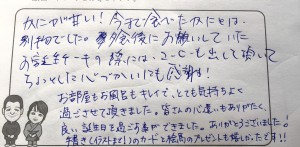 カニが甘い！今まで食べたカニとは、
別物でした。夕食後にお願いしていた
お誕生ケーキの際には、コーヒーも出して頂いて
ちょっとした心づかいにも感謝！
お部屋もお風呂もキレイで、とても気持ちよく
過ごさせて頂きました。皆さんの心遣いもありがたく、
良い誕生日を過ごす事ができました。ありがとうございました！
手書き(イラストまで)のカードと絵馬のプレゼントも嬉しかったです!!